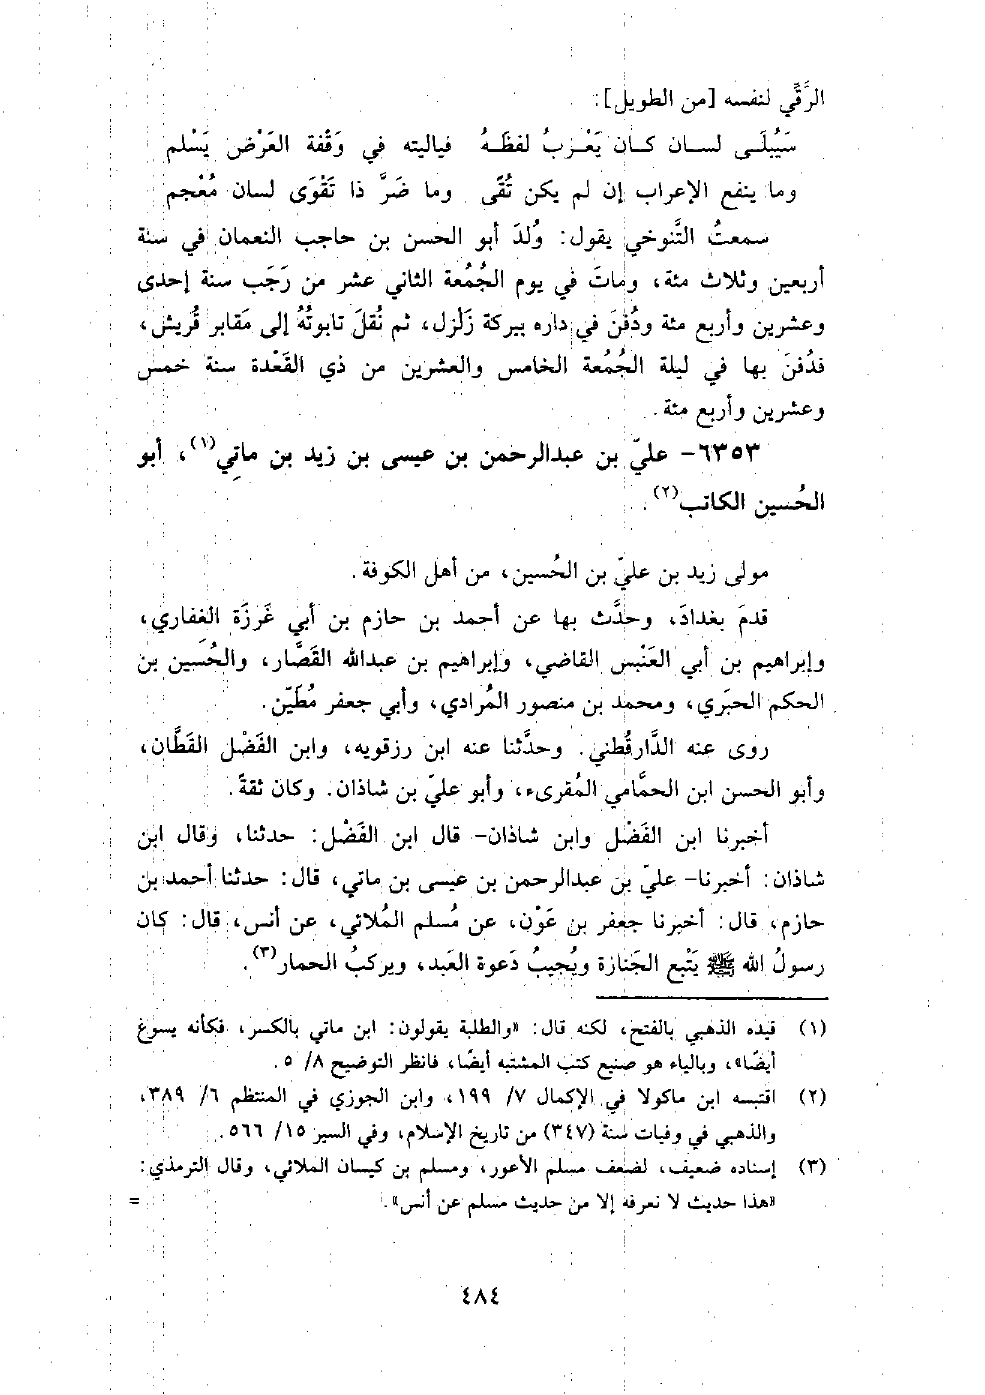 الرَّقِّي لنفسه [من الطويل]:
سَيُبلَى لسان كان يَعْربُ لفظَهُ فياليته في وَقْفة العَرْض يَسْلم
وما ينفع الإعراب إن لم يكن تُقًى وما ضَرَّ ذا تَقْوَى لسان مُعْجم
سمعتُ التَّنوخي يقول: وُلدَ أبو الحسن بن حاجب النعمان في سنة
أربعين وثلاث مئة، وماتَ في يوم الجُمُعة الثاني عشر من رَجَب سنة إحدى
وعشرين وأربع مئة ودُفنَ في داره ببركة زَلْزل، ثم نُقلَ تابوتُهُ إلى مَقابر قُريش،
فدُفنَ بها في ليلة الجُمُعة الخامس والعشرين من ذي القَعْدة سنة خمس
وعشرين وأربع مئة.
٦٣٥٣- عليّ بن عبدالرحمن بن عيسى بن زيد بن ماتِي(١)، أبو
الحُسين الكاتب(٢).
مولى زيد بن عليّ بن الحُسين، من أهل الكوفة.
قدمَ بغدادَ، وحدَّث بها عن أحمد بن حازم بن أبي غَرزَة الغفاري،
وإبراهيم بن أبي العَنْبس القاضي، وإبراهيم بن عبدالله القَصَّار، والحُسين بن
الحكم الحبَري، ومحمد بن منصور المُرادي، وأبي جعفر مُطَيّن.
روى عنه الدَّارقُطني. وحدَّثنا عنه ابن رزقويه، وابن الفَضْل القَطَّان،
وأبو الحسن ابن الحمَّامي المُقرىء، وأبو عليّ بن شاذان. وكان ثقةً.
أخبرنا ابن الفَضْل وابن شاذان- قال ابن الفَضْل: حدثنا، وقال ابن
شاذان: أخبرنا- عليّ بن عبدالرحمن بن عيسى بن ماتي، قال: حدثنا أحمد بن
حازم، قال: أخبرنا جعفر بن عَوْن، عن مُسلم المُلائي، عن أنس، قال: كان
رسولُ الله ﷺ يَتْبع الجَنازة ويُجيبُ دَعوة العَبد، ويركبُ الحمار(٣).
(١) قيده الذهبي بالفتح، لكنه قال: «والطلبة يقولون: ابن ماتي بالكسر، فكأنه يسوغ
أيضًا»، وبالياء هو صنيع كتب المشتبه أيضًا، فانظر التوضيح ٨/ ٥.
(٢) اقتبسه ابن ماكولا في الإكمال ٧/ ١٩٩، وابن الجوزي في المنتظم ٦/ ٣٨٩،
والذهبي في وفيات سنة (٣٤٧) من تاريخ الإسلام، وفي السير ١٥/ ٥٦٦.
(٣) إسناده ضعيف، لضعف مسلم الأعور، ومسلم بن كيسان الملائي، وقال الترمذي:
«هذا حديث لا نعرفه إلا من حديث مسلم عن أنس». =
٤٨٤